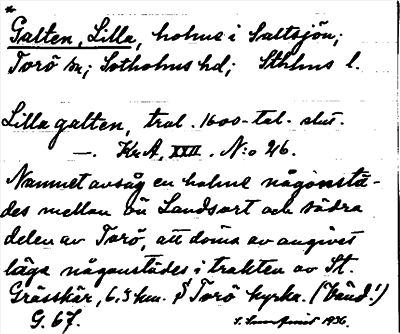 *
Galten, Lilla, holme i Saltsjön;
Torö sn; Sotholms hd; Sthlms l.
Lilla galten, trol. 1600-tal. slut.
—. Kr.A, XXII. N:o 26.
Namnet avsåg en holme någonstä-
des mellan ön Landsort och södra
delen av Torö, att döma av angivet
läge någonstädes i trakten av St.
Grässkär, 6,3 km. S Torö kyrka. (Vänd!)
G. 67.
1936.